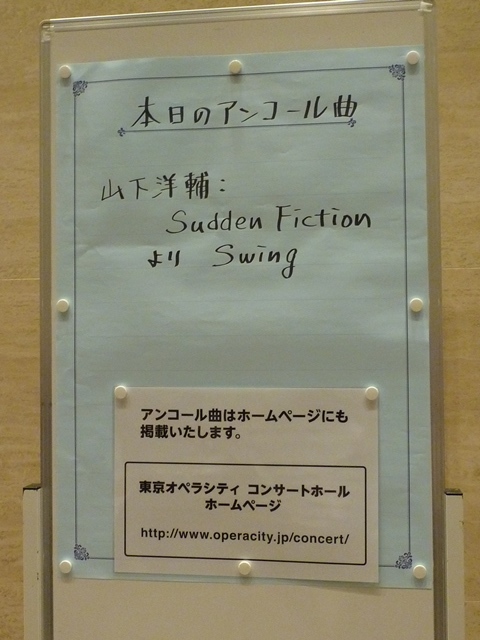 本日のアンコール曲
山下洋輔：
Sudden Fiction
より Swing
アンコール曲はホームページにも
掲載いたします。
東京オペラシティ コンサートホール
ホームページ
http://www.operacity.jp/concert/